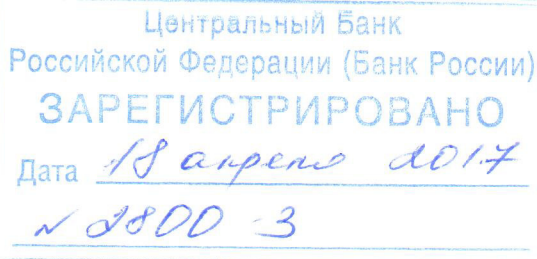 Центральный Банк
Российской Федерации (Банк России)
ЗАРЕГИСТРИРОВАНО
Дата 18 апреля 2017
№ 2800-3